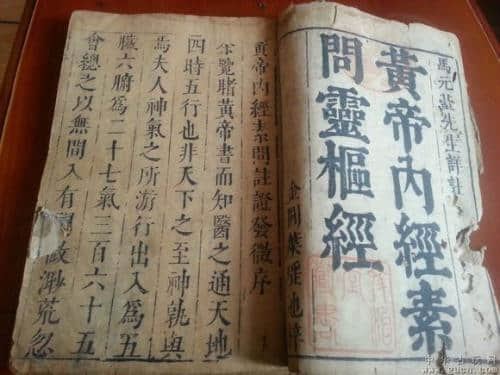 先生詳註
黃帝內經素
問靈樞經
黃帝內經素問註證發微序
余覽睹黃帝書而知醫之通天地
四時五行也非天下之至神孰與
焉夫人神氣之所游行出入爲五
臟六腑爲二十七氣三百六十五
會總之以無間入有間故渺荒忽